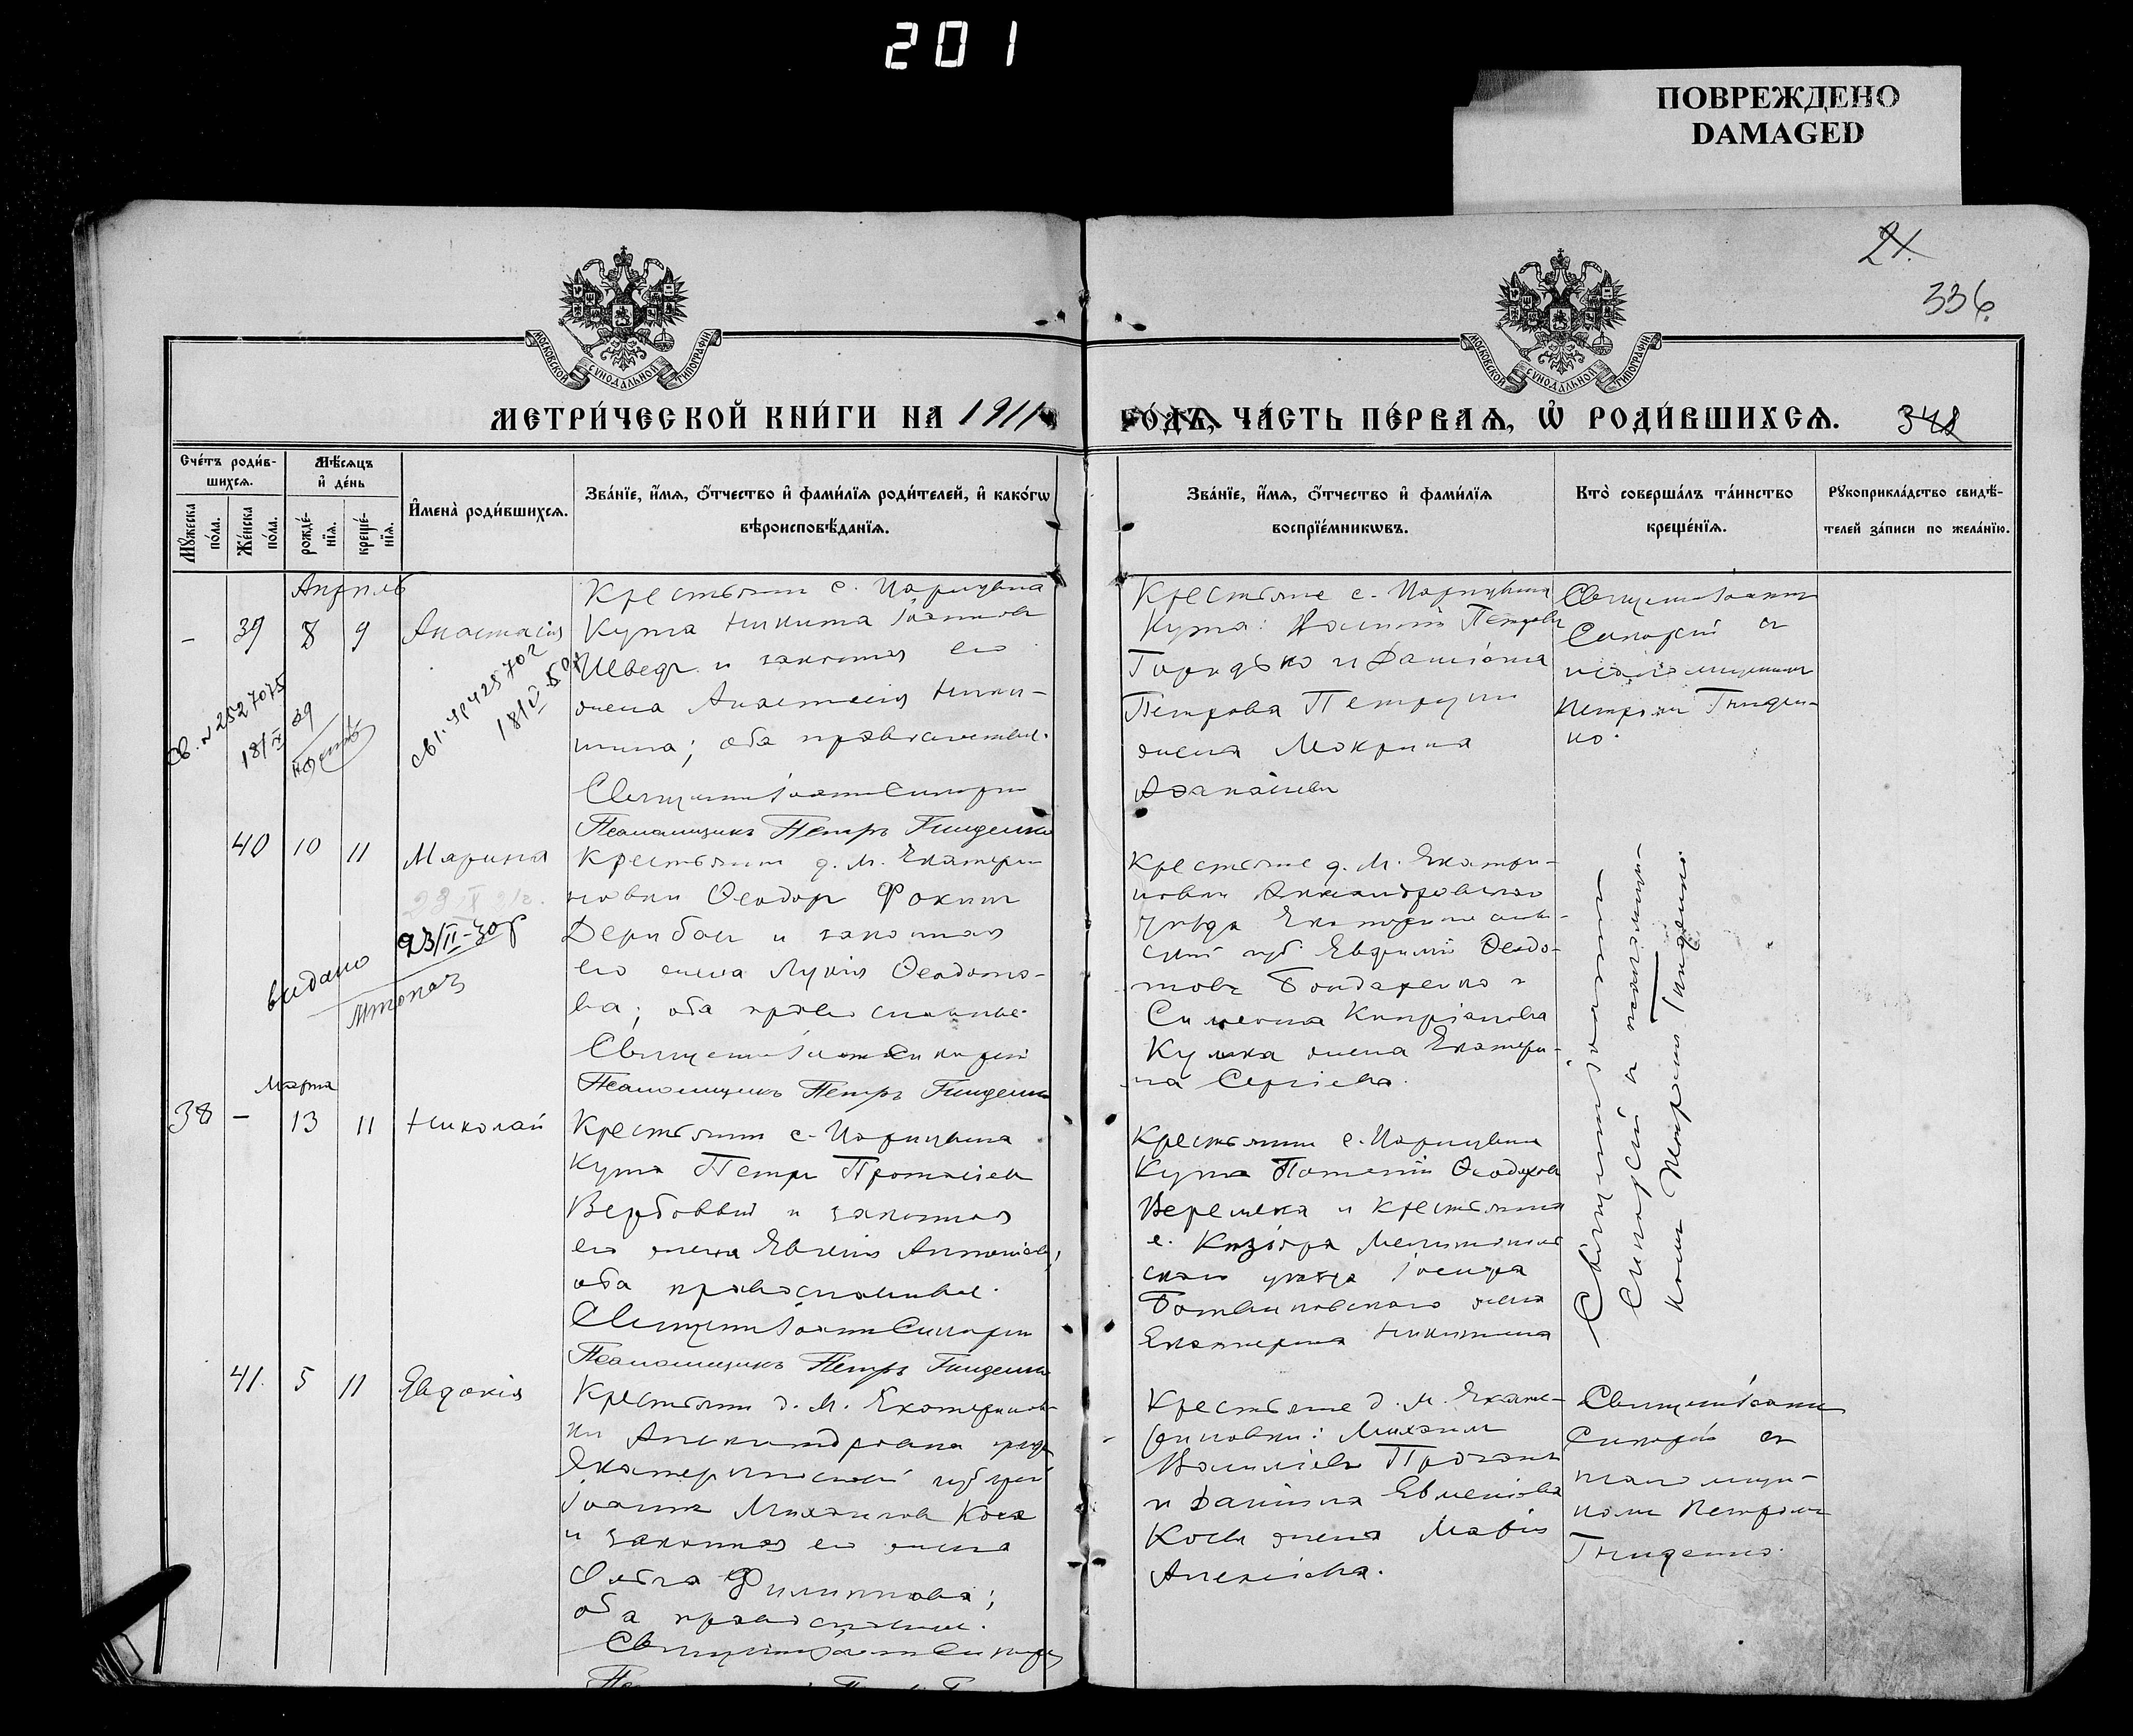 201
ПОВРЕЖДЕНО
DAMAGED
21.
336.
МОСКОВСКОЙ СѴНОДАЛЬНОЙ ТИПОГРАФІИ
МОСКОВСКОЙ СѴНОДАЛЬНОЙ ТИПОГРАФІИ
МЕТРИ́ЧЕСКОЙ КНИ́ГИ НА 1911
ГО́ДЪ, ЧА́СТЬ ПЕ́РВАѦ, Ѡ РОДИ́ВШИХСѦ.
348
Сче́тъ роди́в-
шихсѧ.
Мѣ́сѧцъ
и҆ де́нь
Мꙋ́жеска по́ла.
Же́нска по́ла.
рожде́-
нїѧ.
креще́-
нїѧ.
И҆мена̀ роди́вшихсѧ.
Зва́нїе, и҆́мѧ, ѻ҆́тчество и҆ фами́лїѧ роди́телей, и҆ како́гѡ
вѣроисповѣ́данїѧ.
Зва́нїе, и҆́мѧ, ѻ҆́тчество и҆ фами́лїѧ
воспрїе́мникѡвъ.
Кто̀ соверша́лъ та́инство
креще́нїѧ.
Рꙋкоприкла́дство свидѣ́-
телей за́писи по жела́нїю.
Апрель
— 39 8 9 Анастасія
Крестьянин с. Царицына
Кута Никита Іоаннов
Швец и законная его
жена Анастасія Ники-
тина; оба православные.
Священник Іоанн Сикорский
Псаломщикъ Петръ Гниденко
Крестьяне с. Царицына
Кута: Василий Петров
Горидько и Даниіла
Петрова Петруши
жена Мокрина
Афанасіева
Священник Іоанн
Сикорский с
псаломщиком
Петром Гниден-
ко.
Св. № 2527075
18/IX 39
40 10 11 Марина
23/II-30г
видано
Крестьянин д. М. Екатери
новки Феодор Фокин
Дерибас и законная
его жена Лукія Феодото-
ва; оба православные.
Священник Іоанн Сикорский
Псаломщикъ Петръ Гниденко
Крестьяне д. М. Екатери-
новки Александровскаго
уѣзда Екатеринослав-
ской губ. Евфимій Феодо-
тов Бондаренко и
Симеона Кипріанова
Кулика жена Екатери-
на Сергіева.
Священник Іоанн
Сикорский и псаломщи-
ком Петром Гниденко.
Марта
38 — 13 11 Николай
Крестьянин с. Царицына
Кута Петр Протасіев
Вербовый и законная
его жена Евгенія Антоніева;
оба православные.
Священник Іоанн Сикорский
Псаломщикъ Петръ Гниденко
Крестьянин с. Царицына
Кута Потапій Феодоров
Веремека и крестьянина
с. Кизіяра Мелитополь
скаго уѣзда Іосифа
Ботвиновскаго жена
Екатерина Никитина
41. 5 11 Евдокія
Крестьянин д. М. Екатеринов-
ки Александровскаго уѣзда
Екатеринославской губерніи
Іоанн Михаилов Коса
и законная его жена
Ольга Филиппова;
оба православные.
Священник Іоанн Сикорский
Крестьяне д. М. Екате-
риновки: Михаил
Васильев
и Даниила Евменіова
Косы жена Марія
Алексіева.
Священник Іоанн
Сикорский с
псаломщи-
ком Петром
Гниденко.